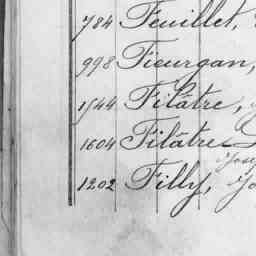 784 Feuillet,
998 Fieurgan,
1544 Filâtre,
1604 Filâtre
1202 Filly,